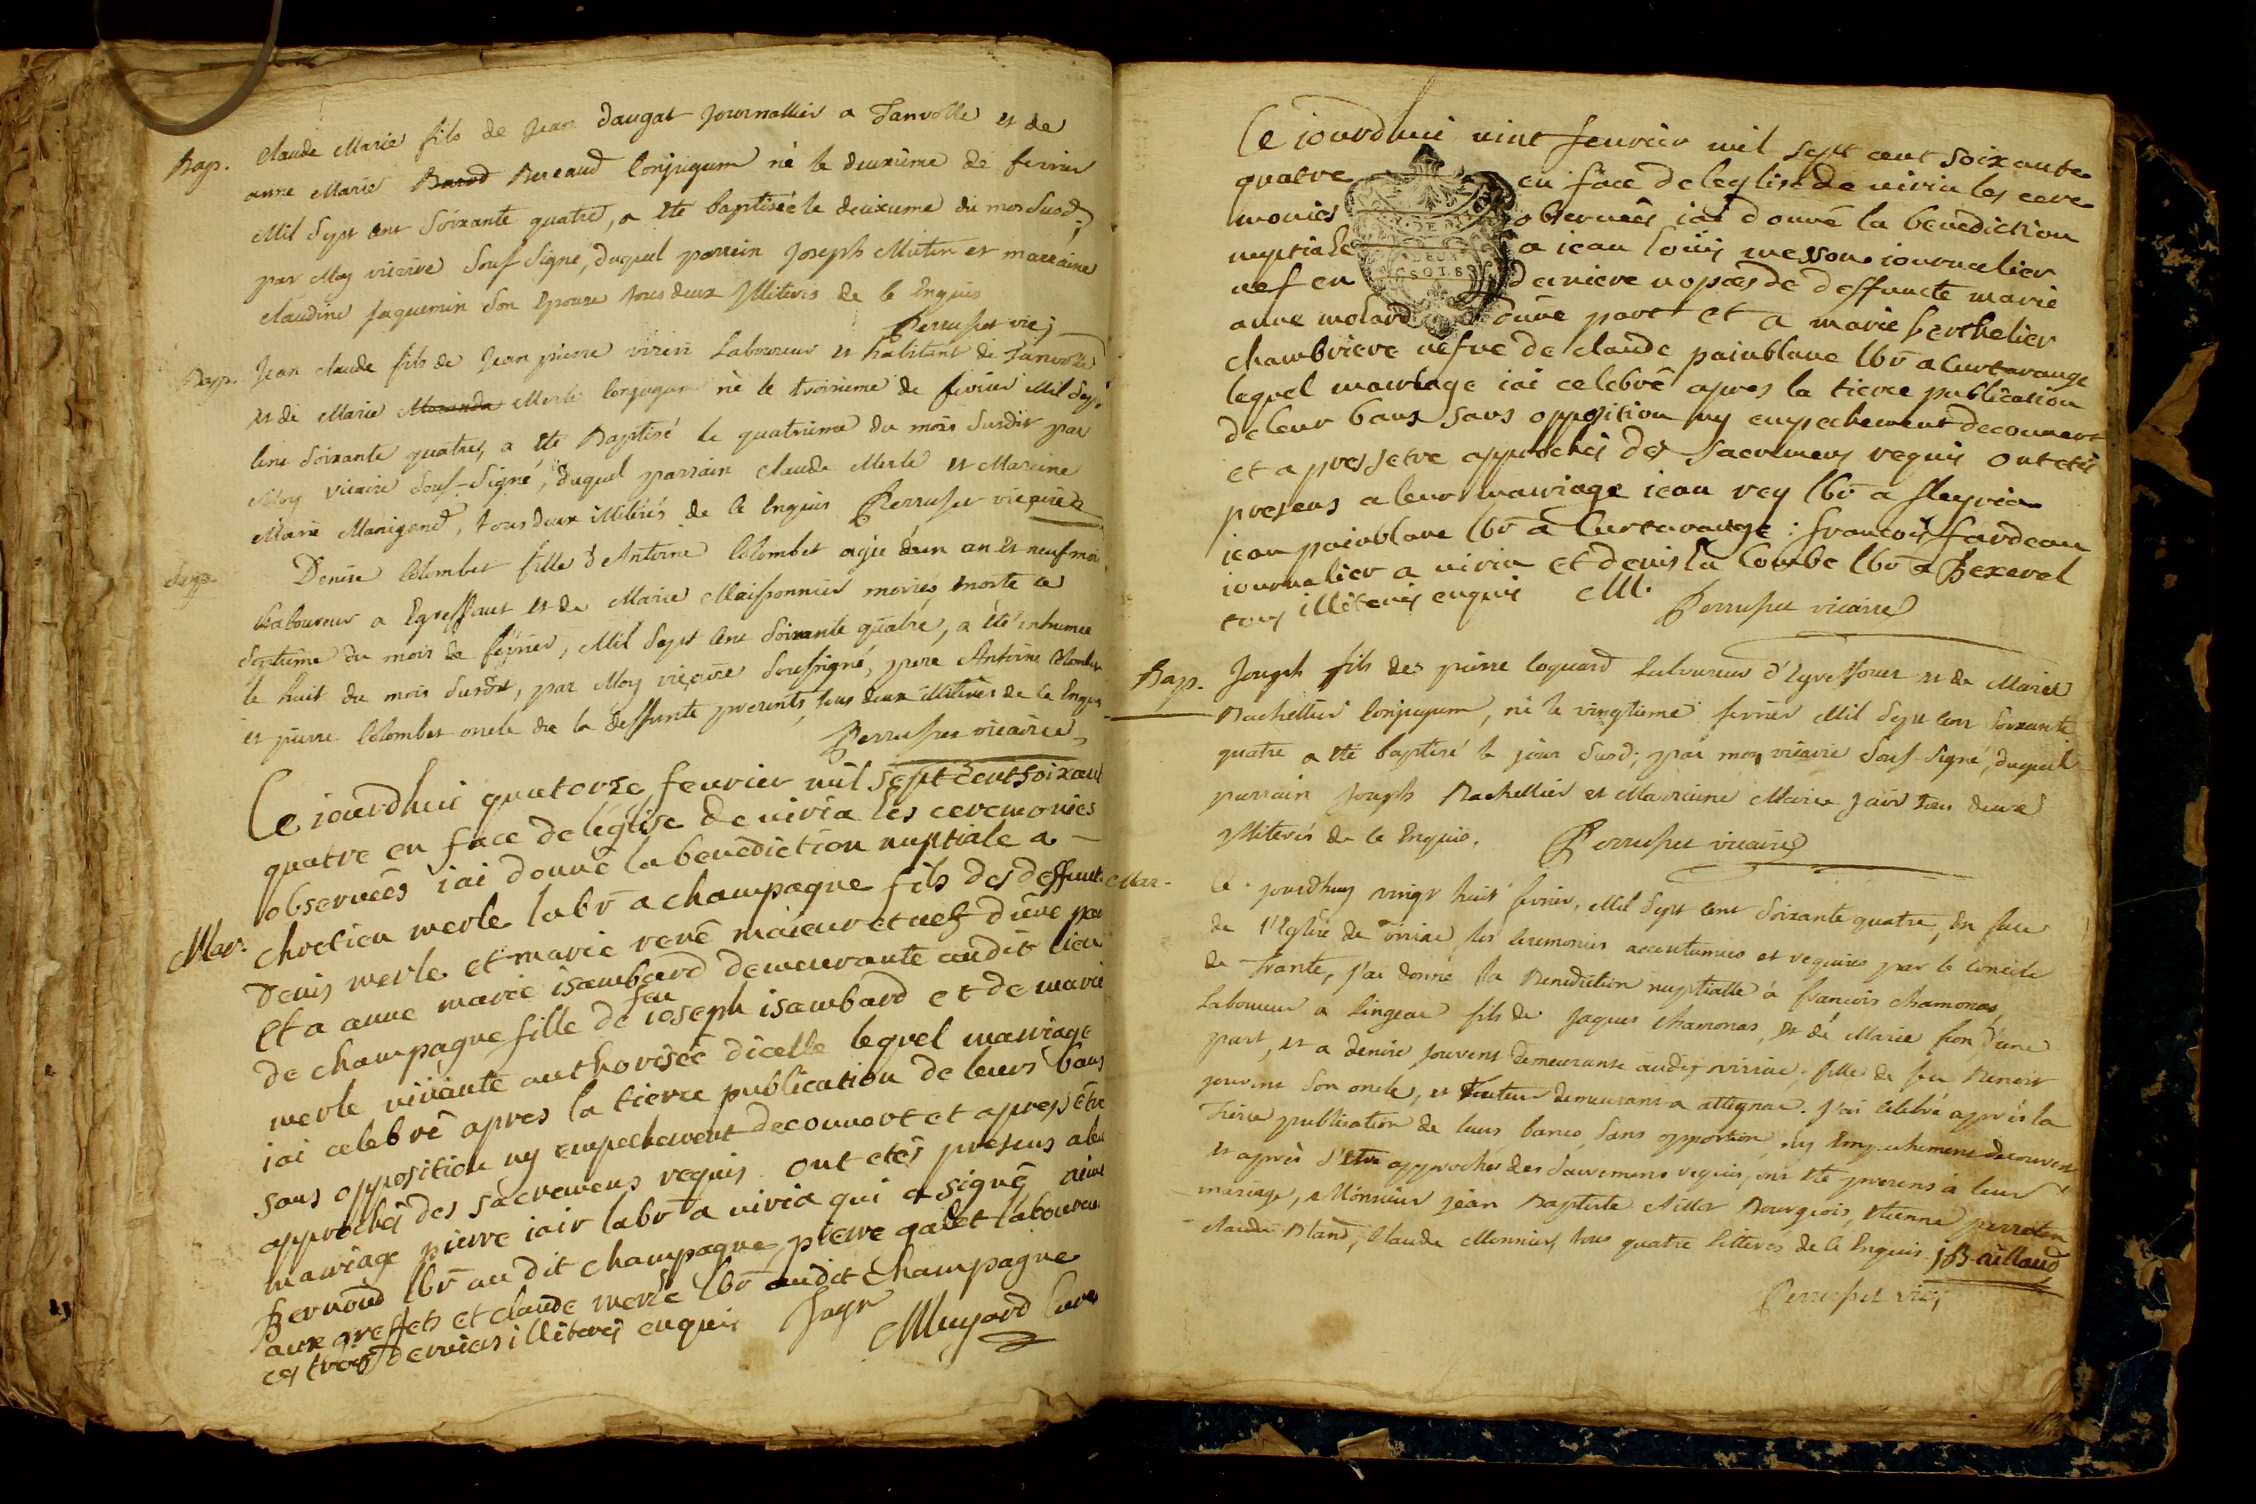 Bap. Claude Marie fils de Jean Daugat Journallier a Tanvolle et de
anne Marie Bereaud Conjugum né le deuxiéme de fevrier
Mil Sept cent Soixante quatre, a eté baptisée le deuxieme du mois Susd;
par Moy vicaire Sous Signé, duquel parrein Joseph Mutin et marraine
claudine Jaquemin Son Epouse tous deux Illiterés de ce Enquis
Perruset vic;
Bap. Jean claude fils de Jean pierre virieu Laboureur et habitant de Tanvolle
et de Marie Merle Conjugum né le troisieme de fevrier Mil Sept
Cent Soixante quatre, a eté Baptisé le quatrieme du mois Susdit par
Moy vicaire Sous-Signé, duquel parrain claude Merle et Maraine
Marie Manigand, tous deux illiterés de ce Enquis Perruset vicaire
Denise Colombet fille d'Antoine Colombet agée d'un an et neuf moi
Laboureur a Egressoure et de Marie Maissonnier mariés, morte ce
Septieme du mois de fevrier, Mil Sept Cent Soixante quatre, a eté inhumee
le huit du mois Susdit, par Moy vicaire Soussigné, pere Antoine Colombet
et pierre Colombet oncle de la deffunte presents, tous deux illiterés de ce Enquis
Perruset vicaire
Ce iourdhui quatorze feurier mil sept cent soixant
quatre en face de léglise de viria les ceremonies
observeés iai donné la benediction nuptiale a
Mar. chretien merle labr a champagne fils des deffunts
Denis merle et marie rené maieur et nef dune par
et a anne marie isambard demeurante audit lieu
de champagne fille de feu ioseph isambard et de marie
merle vivante authorisée dicelle lequel mariage
iai celebré apres la tierce publication de leurs bans
sans opposition ny empechement decouvert et apres s'être
approchés des sacremens requis ont etés presens a leu
mariage pierre iair labr a viria qui a signé aimé
Bernoud lbr au dit champagne, pierre galet laboureu
aux greffets et claude merle lbr audit champagne
ces trois derniers illiterés enquis Jayr
Muyard Curé
Ce iourdhui vint feurier mil sept cent soixante
quatre en face de leglise de viria les cere
monies observeés iai donné la benediction
nuptiale a iean loüis messon iournalier
nef en derniere nopces de deffuncte marie
anne molard dune part et a marie berthelier
chambriere vefve de claude painblanc lbr a Curtarange
lequel mariage iai celebré apres la tierce publication
de leur bans sans opposition ny empechement decouvert
et apres setre approchés des sacremens requis ont etés
presens a leur mariage iean rey lbr a fleyria
iean painblanc lbr a Curtarange: francois fardeau
iournalier a viria et denis la Combe lbr a Bexerel
tous illiterés enquis M.
Perruset vicaire
DEUX
SOLS
Bap. Joseph fils des pierre loquard Laboureur d'Egressoure et de Marie
Rachellier Conjugum, né le vingtieme fevrier Mil Sept Cent Soixante
quatre a eté baptisé le jour Susd; par moy vicaire Sous Signé, duquel
parrain Joseph Rachellier et Marraine Marie Jair tous deux
Illiterés de ce Enquis. Perruset vicaire
Mar. Ce jourdhuy vingt huit fevrier, Mil Sept Cent Soixante quatre, En face
de l'Eglise de viriac, les Ceremonies accoutumées et requises par le Concile
de Trante, j'ai donné la Benediction nuptialle à francois chamonas,
Laboureur a lingeac fils de Jaques chamonas, et de Marie fion d'une
part, et a denise Jouvent demeurante audit viriac, fille de feu Benoit
jouvent Son oncle, et Tuteur demeurant a attignac. J'ai Celebré après la
Tierce publication de leurs bancs, Sans opposition, ny Empechement decouvert
et après s'etre approchés des Sacremens requis, ont eté presens à leur
mariage, Monsieur jean Baptiste Aillod Bourgeois, Etienne perraton
claude Bland, Claude Monnier, tous quatre litteres de ce Enquis. JBaillaud
Perruset vic;